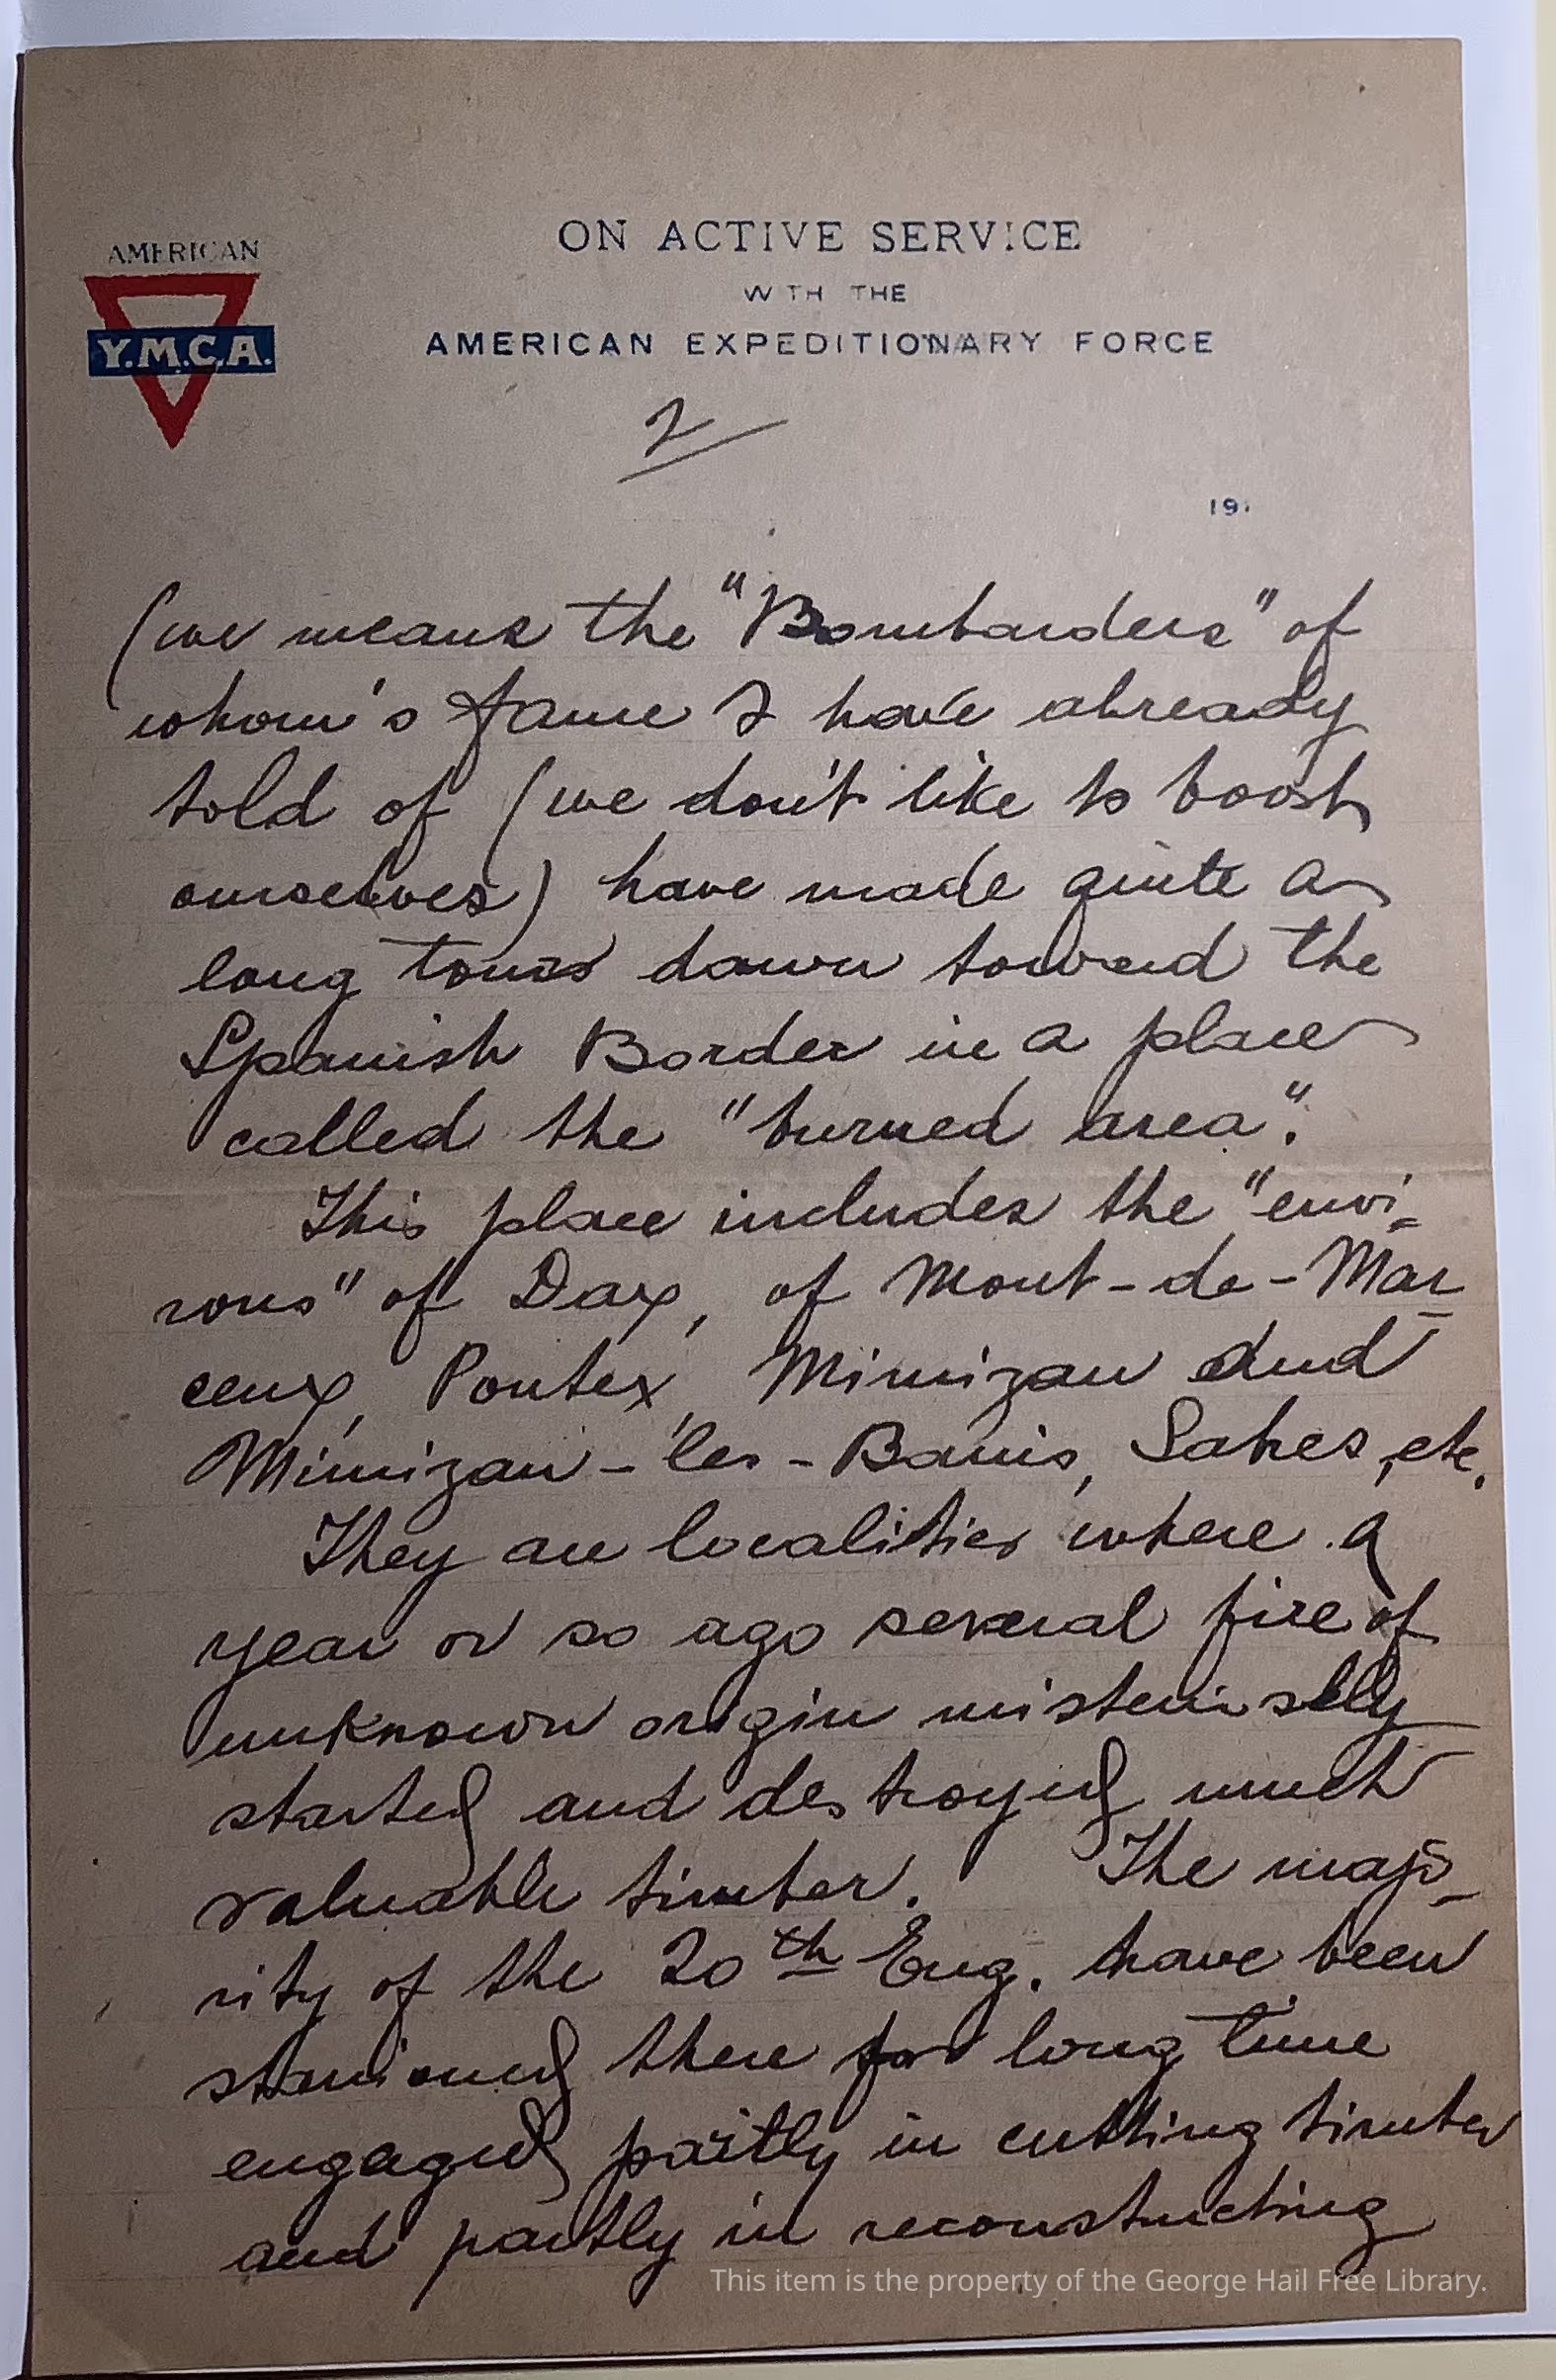 AMERICAN
Y.M.C.A.
ON ACTIVE SERVICE
WITH THE
AMERICAN EXPEDITIONARY FORCE
2
191
(we means the "Bombarders" of
whom's fame I have already
told of (we don't like to boost
ourselves) have made quite a
long tours down toward the
Spanish Border in a place
called the "burned area".
This place includes the "envi-
rons" of Dax, of Mont-de-Mar-
ceux, Pontex, Mimizan and
Mimizan-les-Bains, Sabres, etc.
They are localities where a
year or so ago several fire of
unknown origin misteriosly
started and destroyed much
valuable timber. The majo-
rity of the 20th Eng. have been
stanioned there for long time
engaged partly in cutting timber
and partly in reconstructing
This item is the property of the George Hail Free Library.